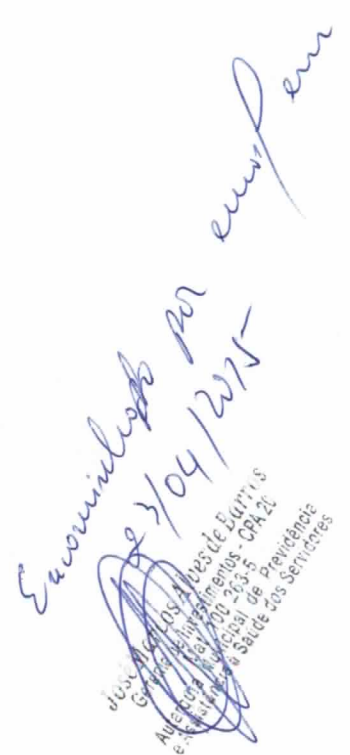 Encaminhado por email em
23/04/2015
José Marcos Alves de Barros
Gerente de Investimentos - CPA 20
Mat. 700 263-5
Autarquia Municipal de Previdência
e Assistência à Saúde dos Servidores